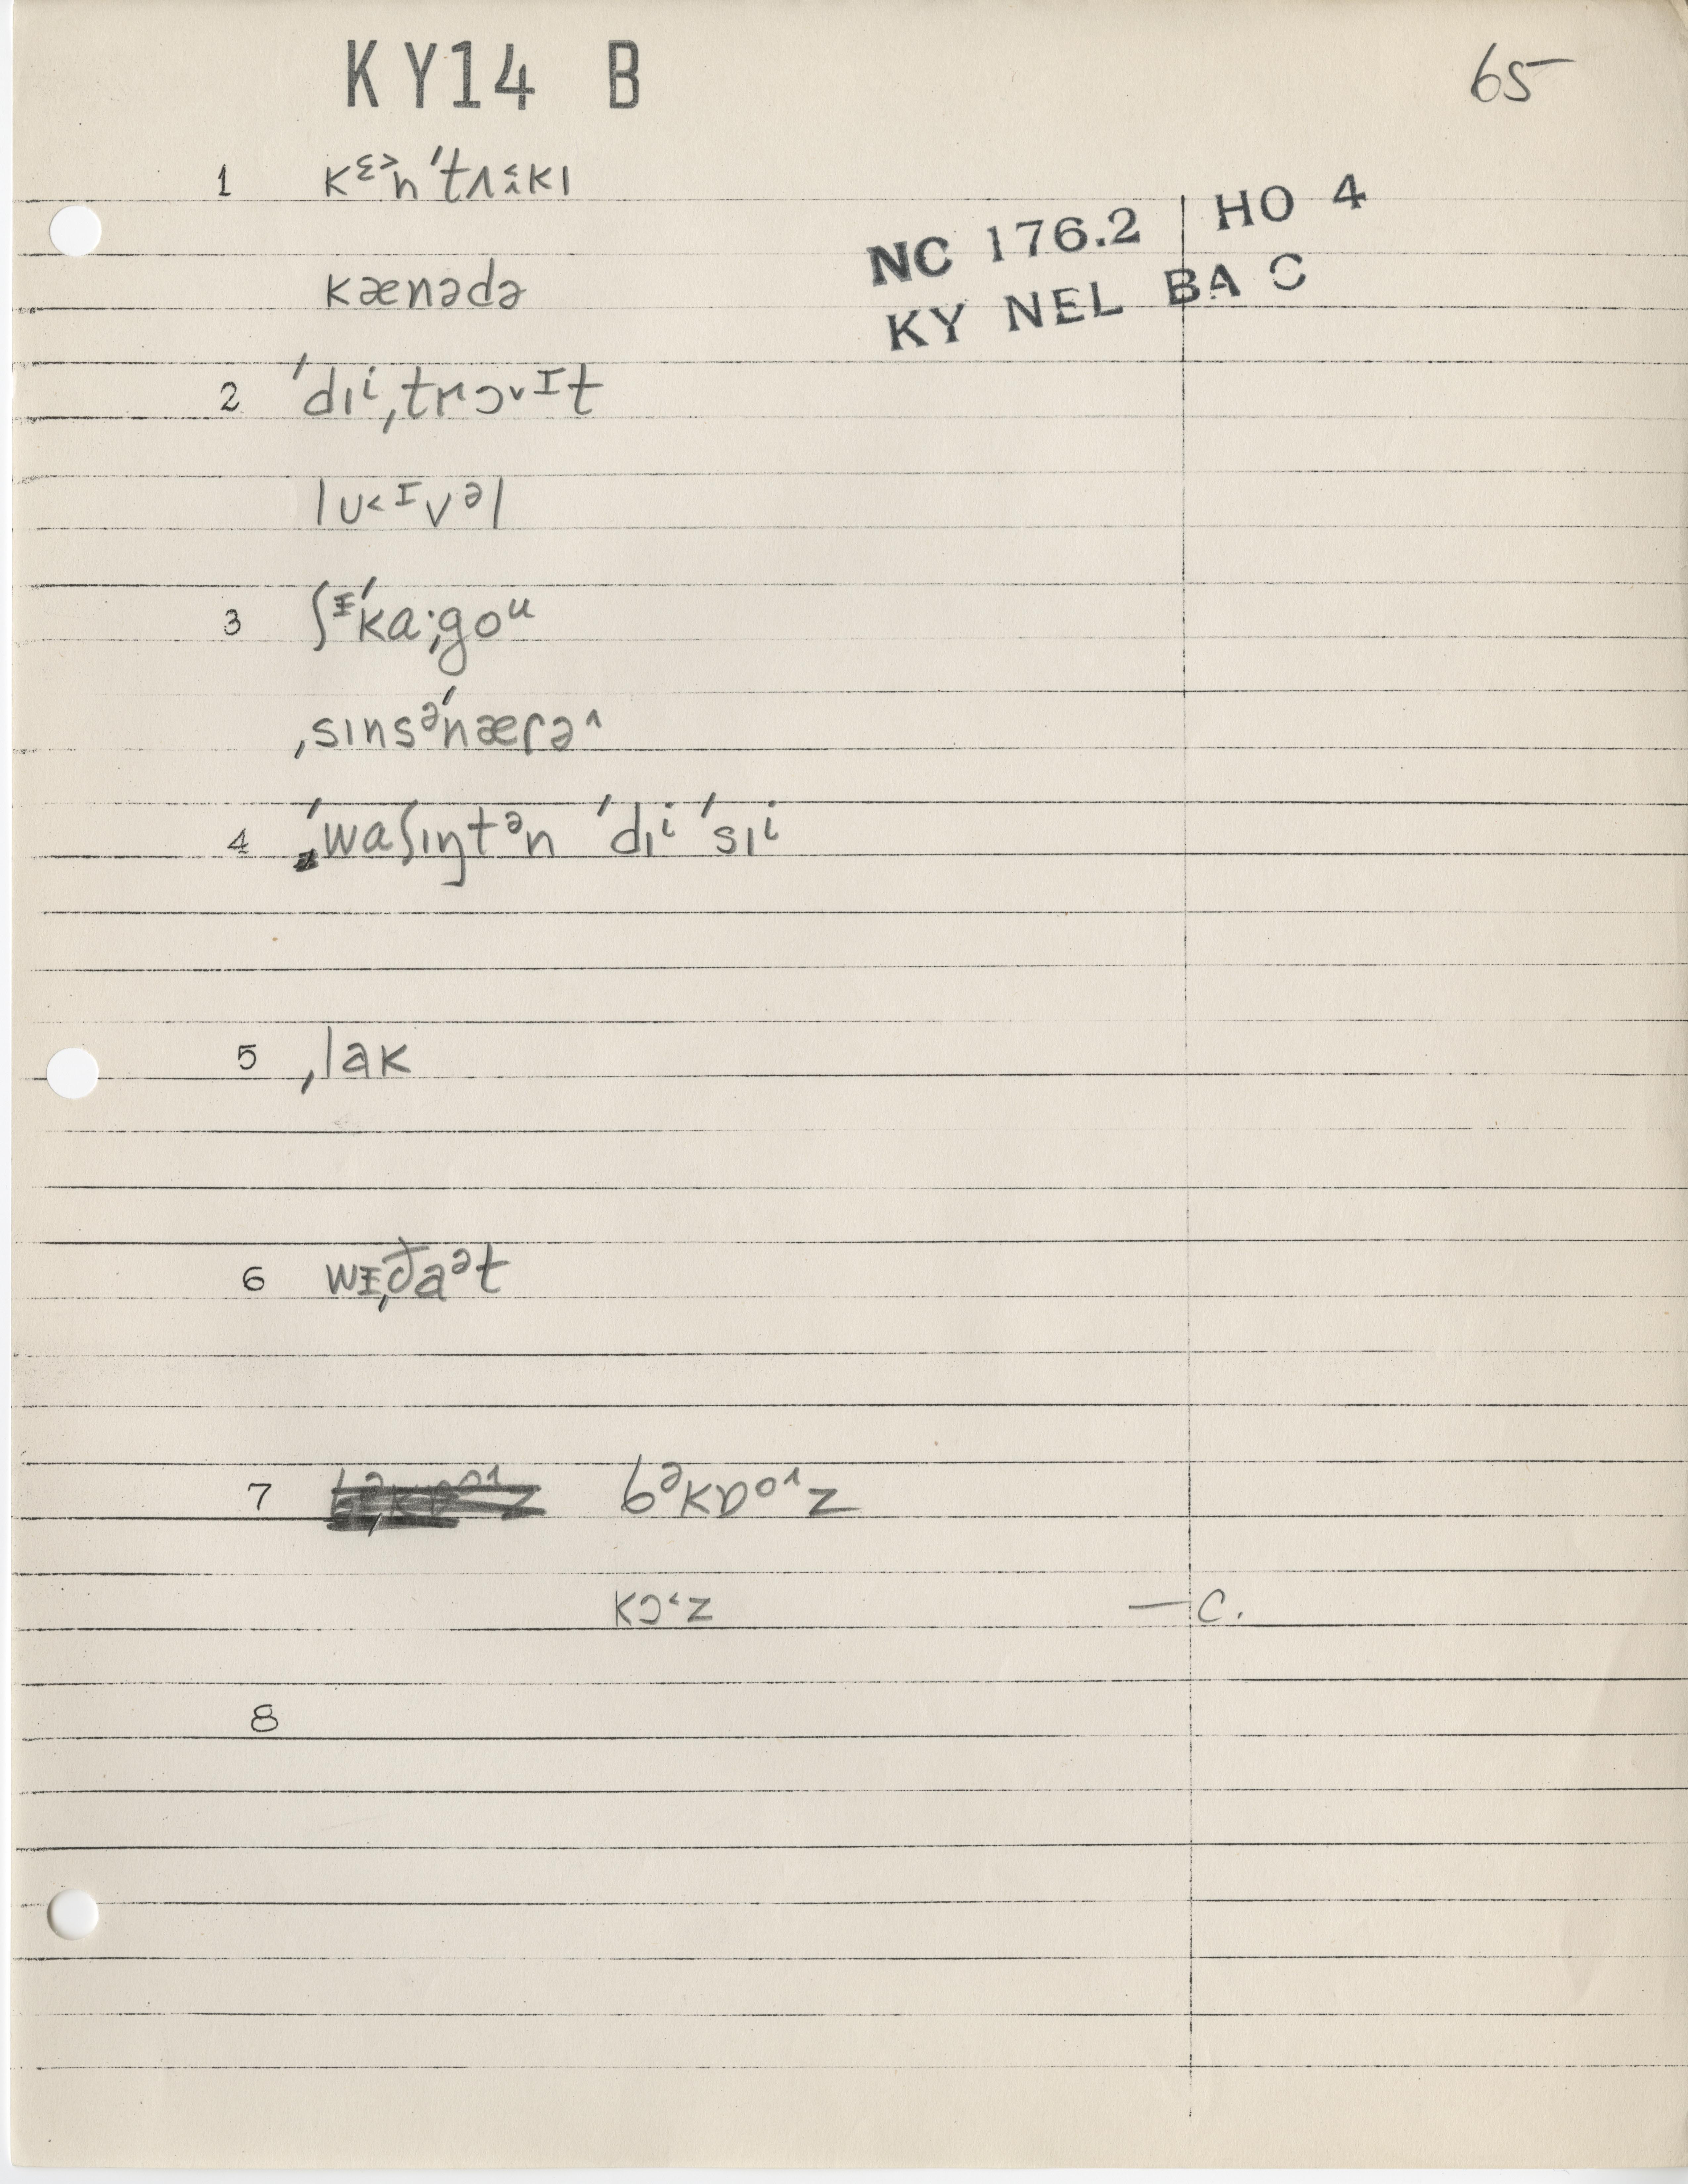 KY14 B
65
1 kᵋ˃n ˈtʌɨ̂kɪ
NC 176.2 | HO 4
KY NEL BA C
kænədə
2 ˈdɪⁱˌtrɔ˅ᶦt
lu˂ᶦvᵊl
3 ʃᶤˈka·ˌgoᵘ
ˌsɪnsᵊˈnæɾə˄
4 ˈwaʃɪŋtᵊn ˈdɪⁱ ˈsɪⁱ
5 ˌlak
6 wᵻˌðaᵊt
7 bᵊkɒᵒ˄z
kɔ˂z — C.
8